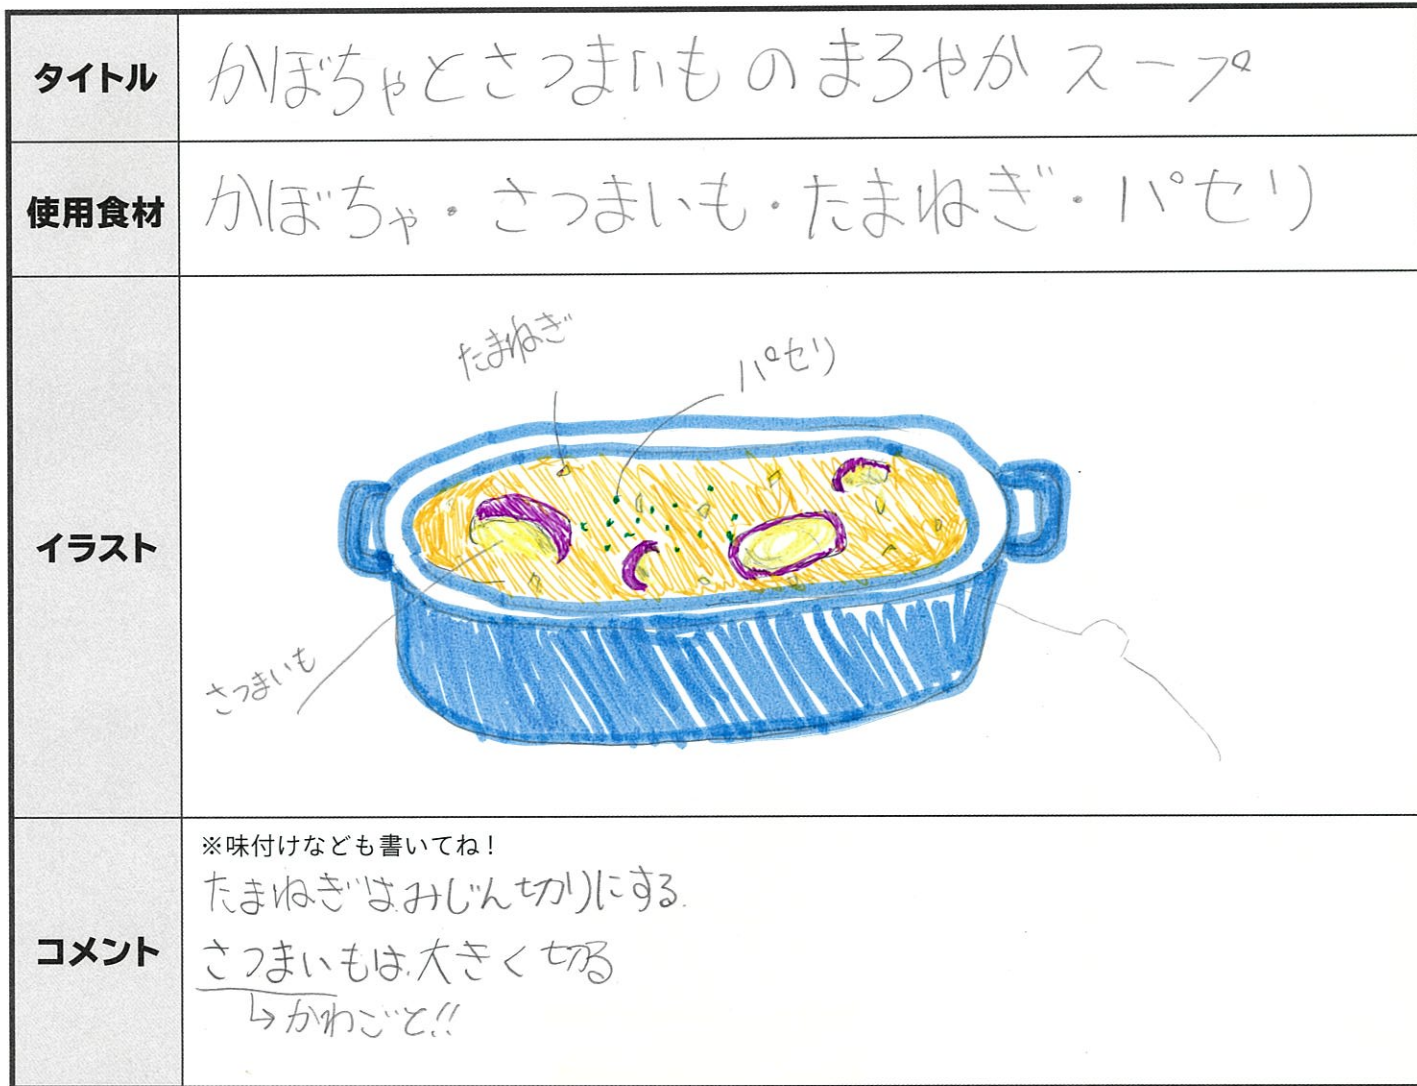 タイトル
かぼちゃとさつまいものまろやかスープ
使用食材
かぼちゃ・さつまいも・たまねぎ・パセリ
イラスト
たまねぎ
パセリ
さつまいも
コメント
※味付けなども書いてね！
たまねぎはみじん切りにする.
さつまいもは大きく切る
↳かわごと!!